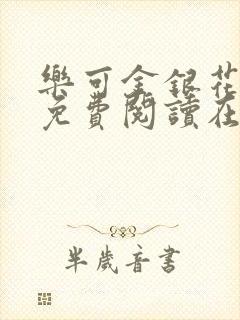 樂可金銀花
免費閱讀在
半歲音書